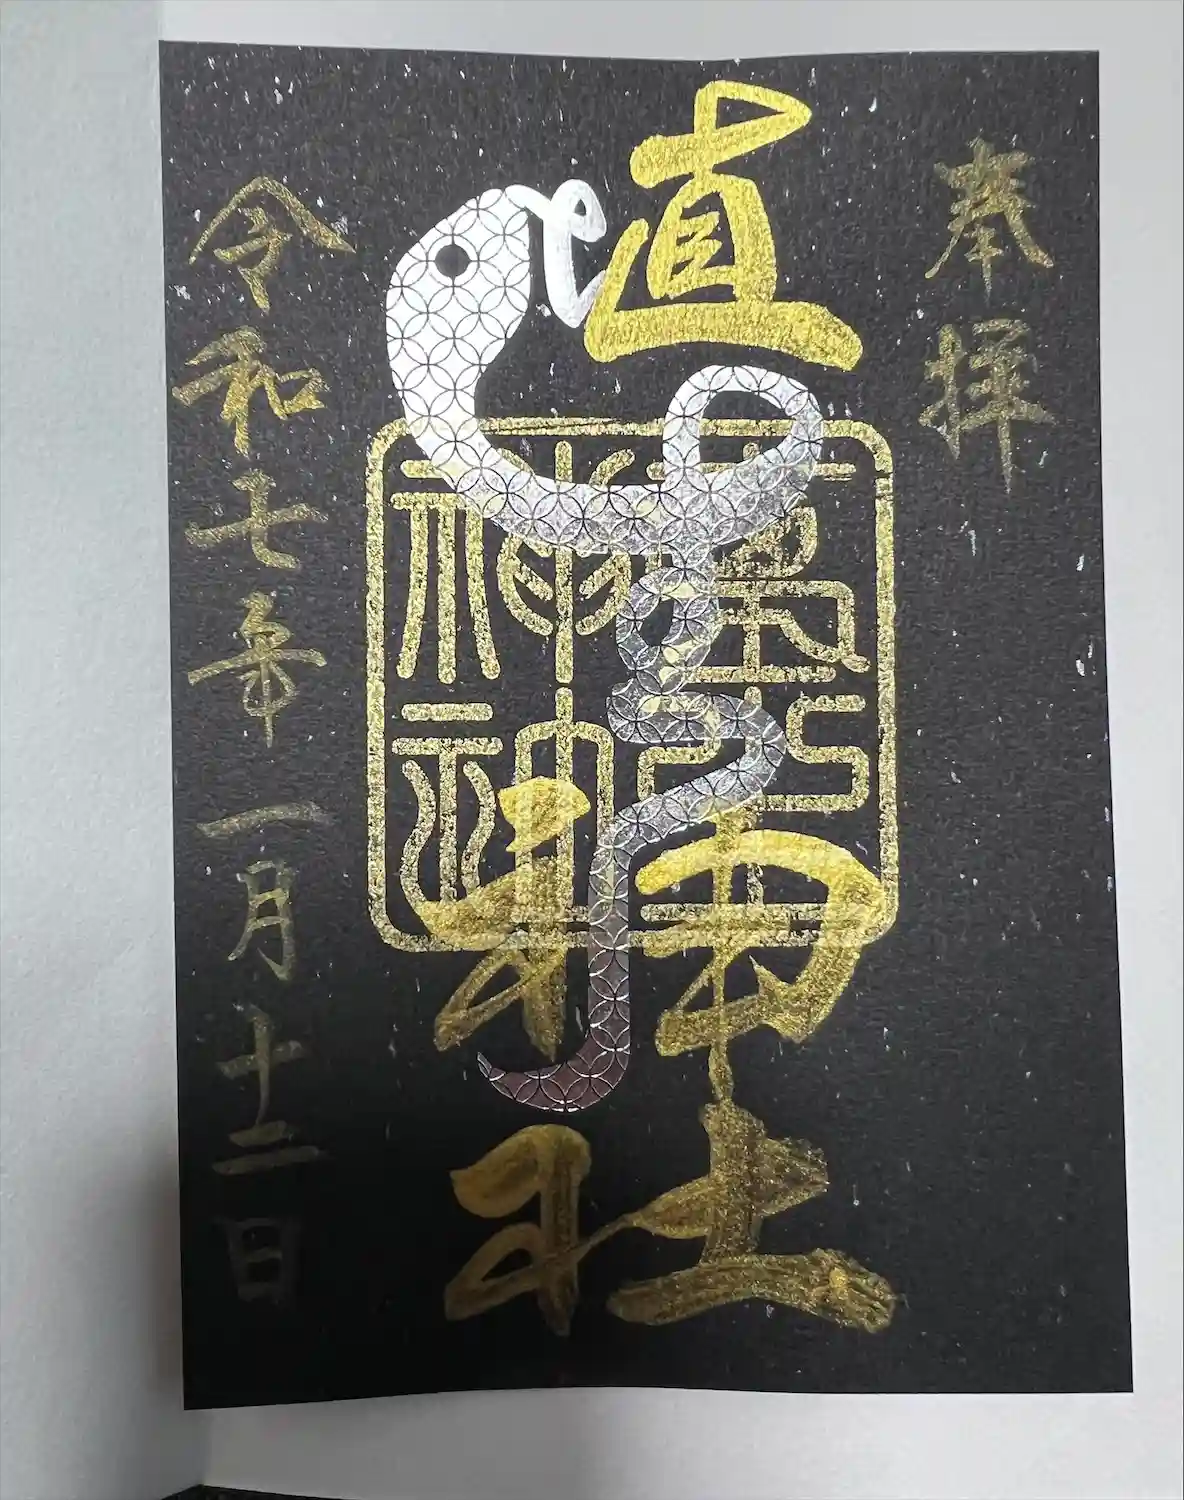 奉拝
直神社
令和七年一月十二日